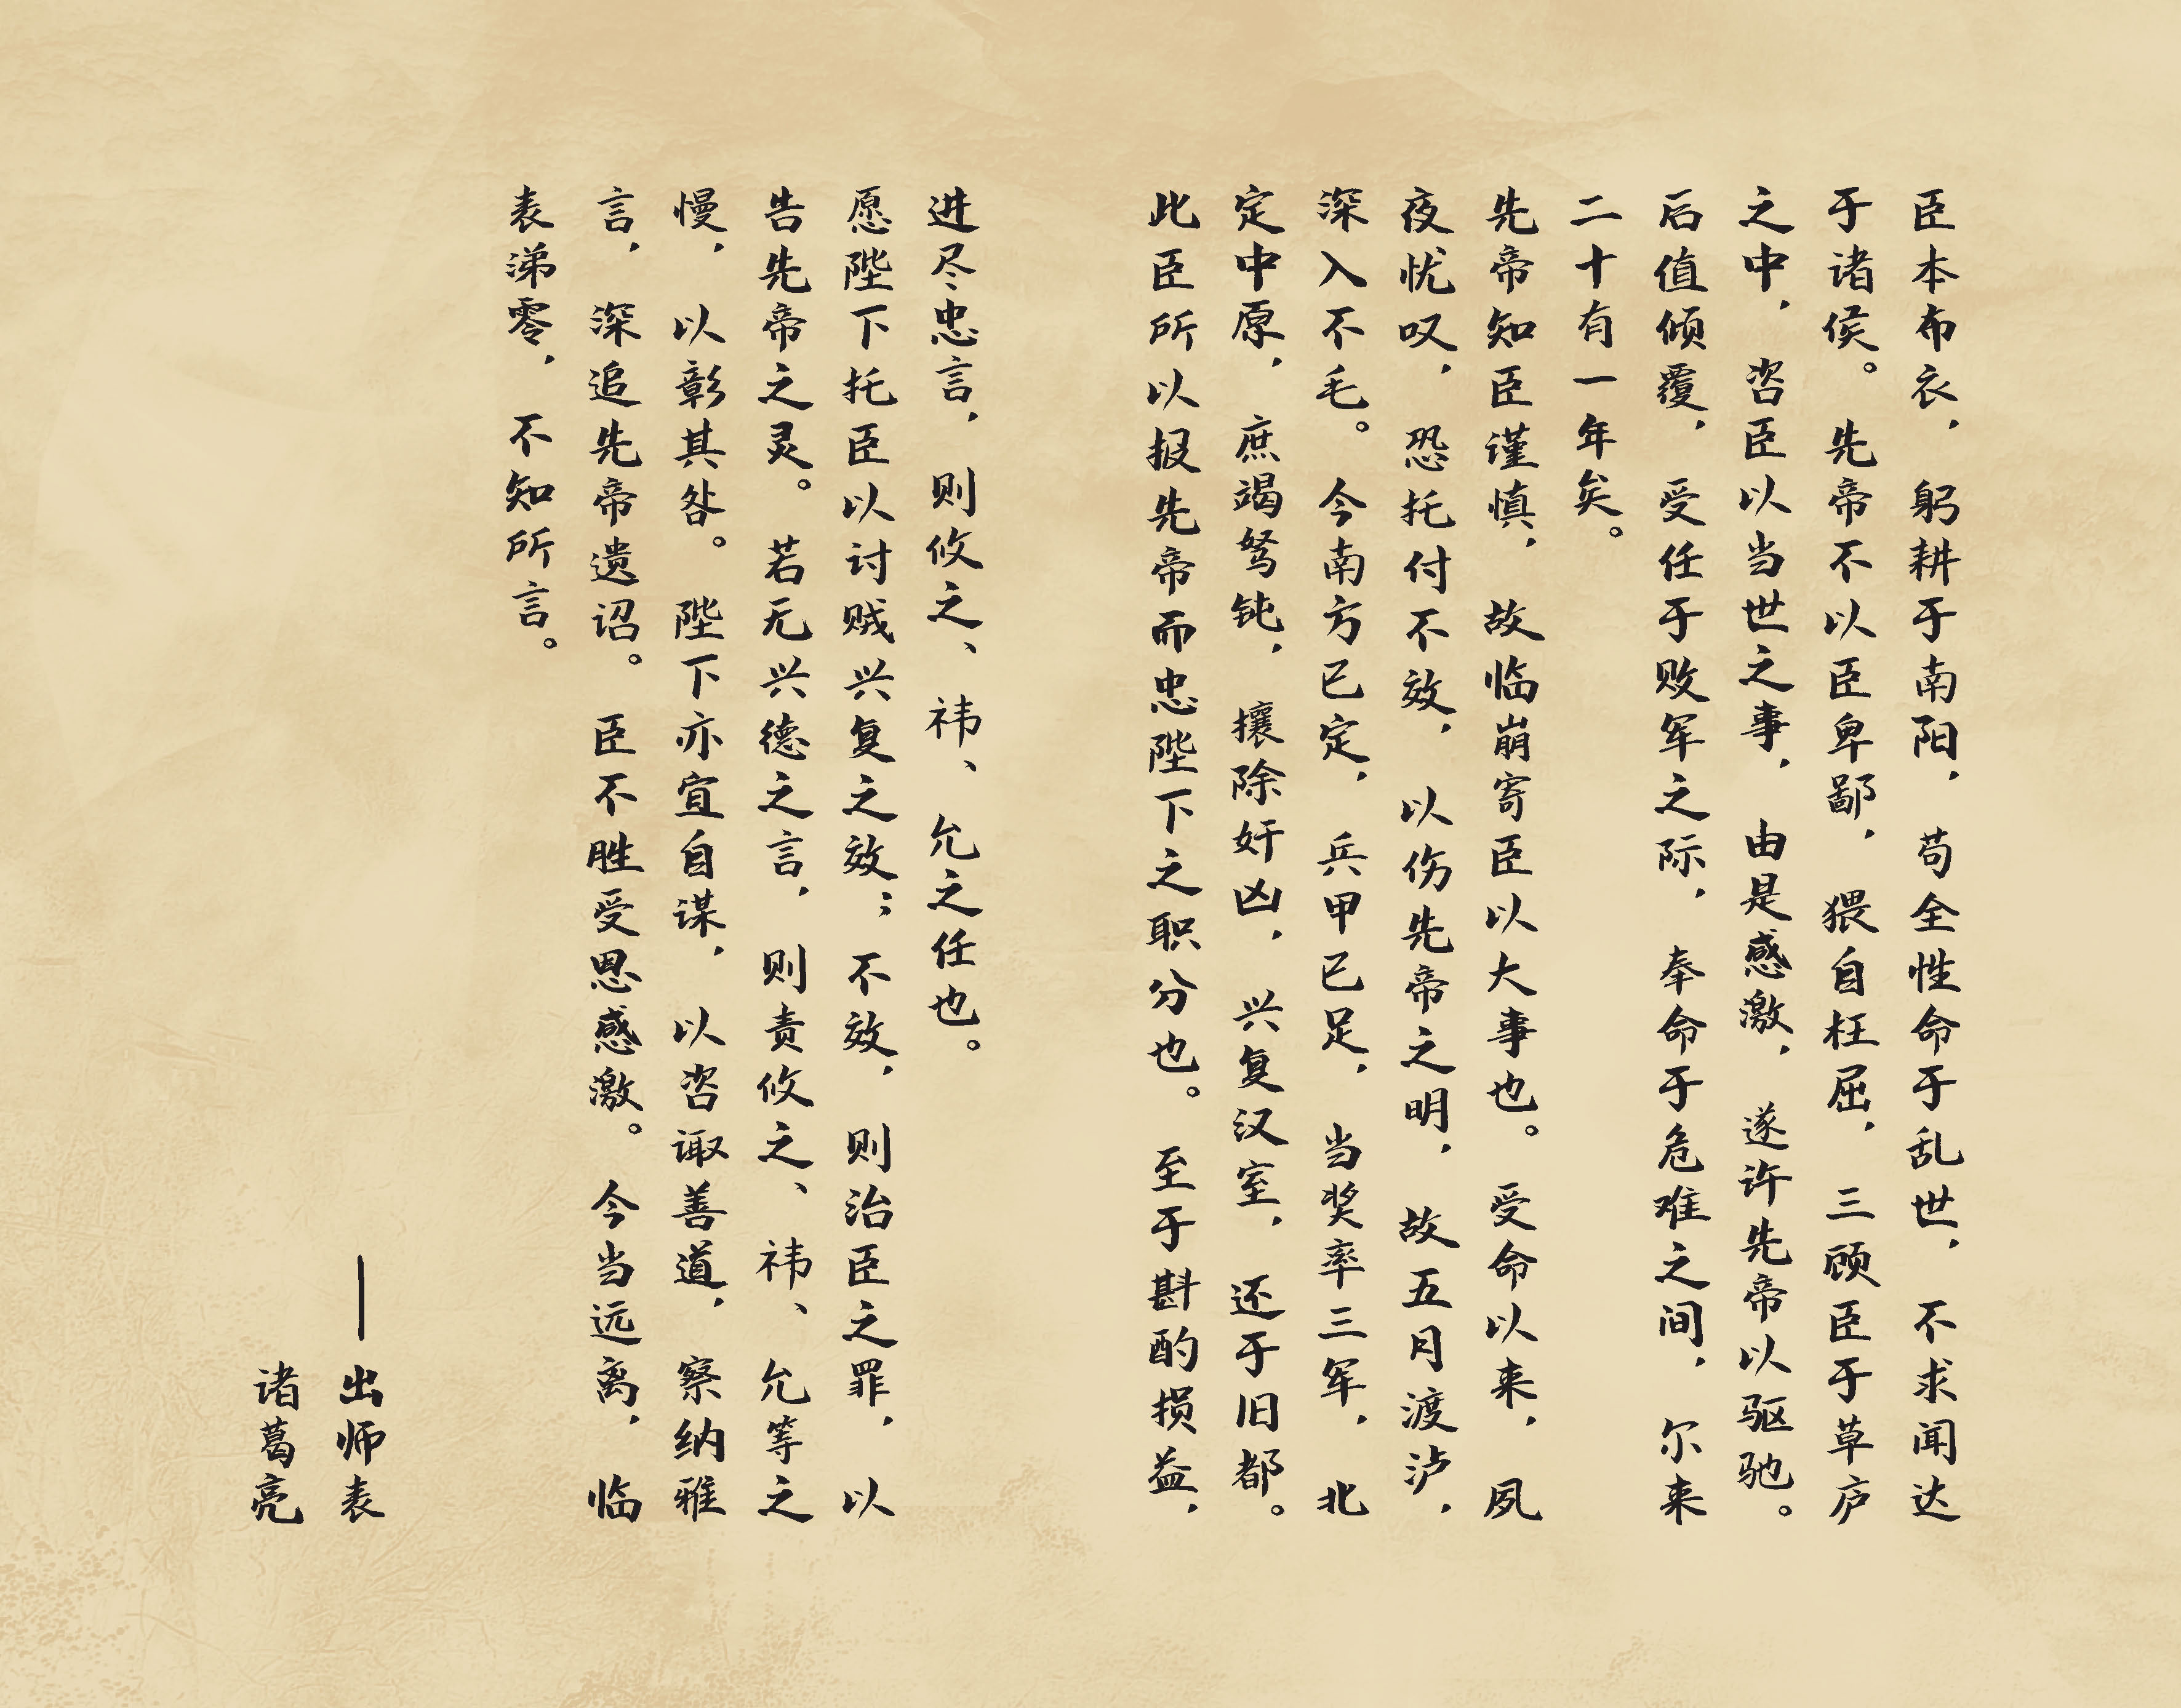 臣本布衣，躬耕于南阳，苟全性命于乱世，不求闻达
于诸侯。先帝不以臣卑鄙，猥自枉屈，三顾臣于草庐
之中，咨臣以当世之事，由是感激，遂许先帝以驱驰。
后值倾覆，受任于败军之际，奉命于危难之间，尔来
二十有一年矣。
先帝知臣谨慎，故临崩寄臣以大事也。受命以来，夙
夜忧叹，恐托付不效，以伤先帝之明，故五月渡泸，
深入不毛。今南方已定，兵甲已足，当奖率三军，北
定中原，庶竭驽钝，攘除奸凶，兴复汉室，还于旧都。
此臣所以报先帝而忠陛下之职分也。至于斟酌损益，
进尽忠言，则攸之、祎、允之任也。
愿陛下托臣以讨贼兴复之效；不效，则治臣之罪，以
告先帝之灵。若无兴德之言，则责攸之、祎、允等之
慢，以彰其咎。陛下亦宜自谋，以咨诹善道，察纳雅
言，深追先帝遗诏。臣不胜受恩感激。今当远离，临
表涕零，不知所言。
——出师表
诸葛亮